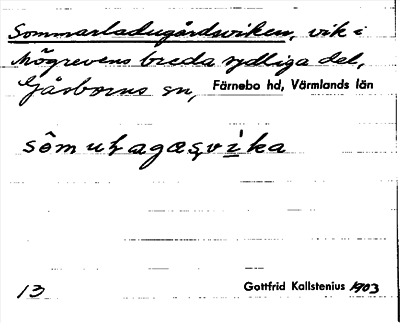 Sommarladugårdsviken, vik i
Högrevens breda sydliga del,
Gåsborns sn, Färnebo hd, Värmlands län
13 Gottfrid Kallstenius 1903